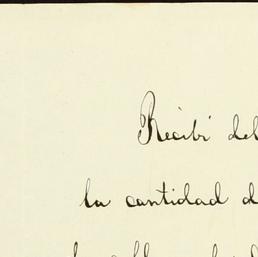 Recibí del
la cantidad d